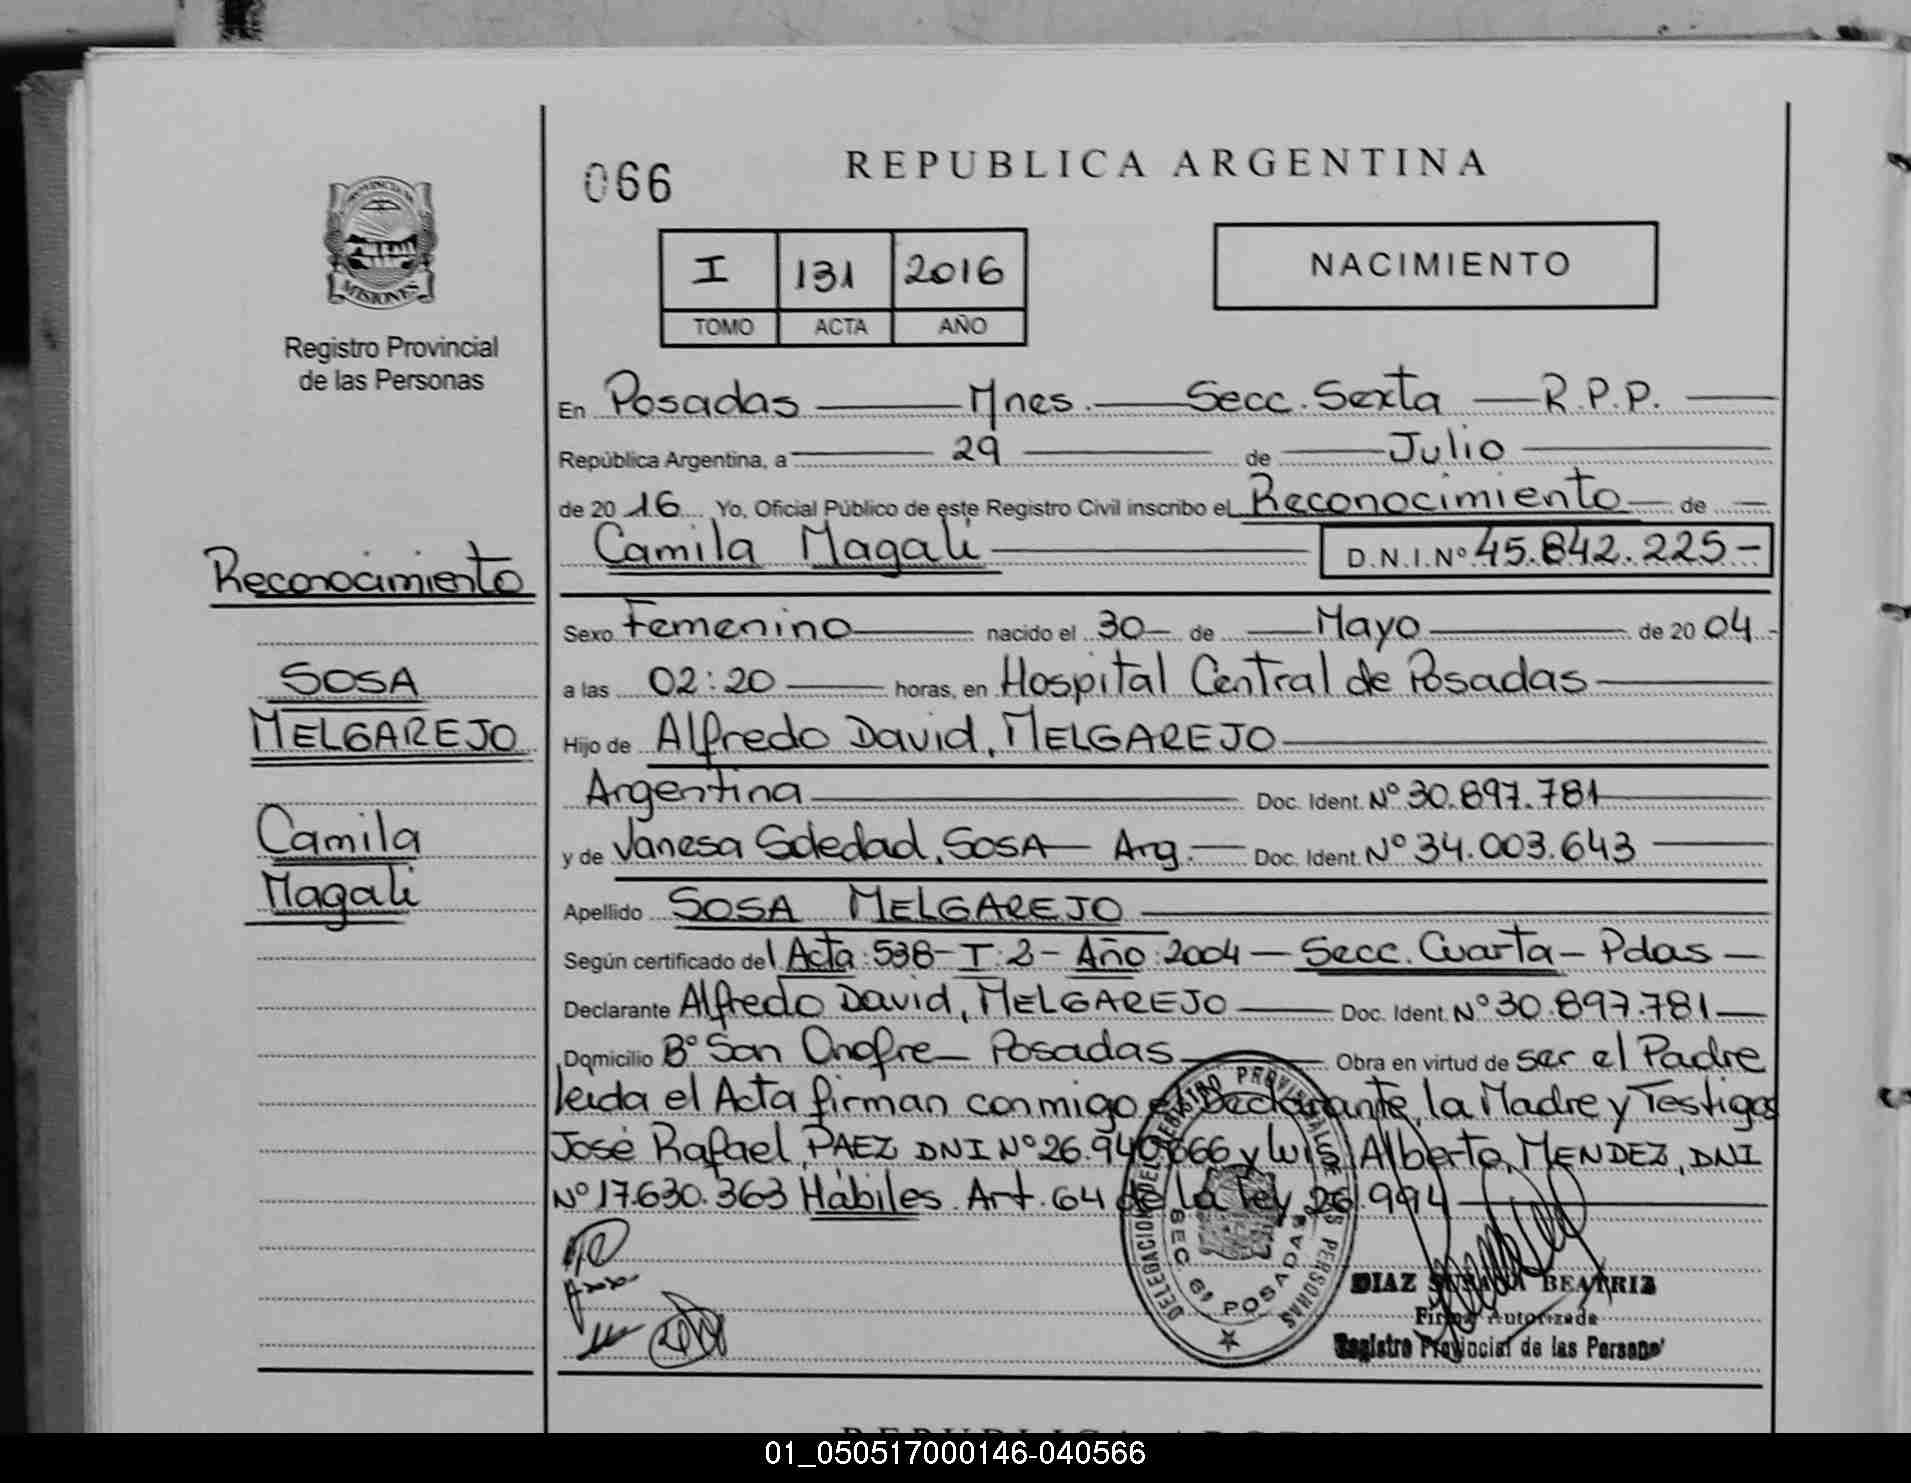 PROVINCIA DE
MISIONES
Registro Provincial
de las Personas
Reconocimiento
SOSA
MELGAREJO
Camila
Magali
066
REPUBLICA ARGENTINA
I 131 2016
TOMO ACTA AÑO
NACIMIENTO
En Posadas Mnes. Secc. Sexta R.P.P.
República Argentina, a 29 de Julio
de 2016 Yo, Oficial Público de este Registro Civil inscribo el Reconocimiento de
Camila Magali D.N.I. Nº 45.842.225-
Sexo Femenino nacido el 30 de Mayo de 2004
a las 02:20 horas, en Hospital Central de Posadas
Hijo de Alfredo David, MELGAREJO
Argentina Doc. Ident. Nº 30.897.781
y de Vanesa Soledad, SOSA Arg. Doc. Ident. Nº 34.003.643
Apellido SOSA MELGAREJO
Según certificado del Acta: 538- T: 2- Año: 2004 - Secc. Cuarta - Pdas -
Declarante Alfredo David, MELGAREJO Doc. Ident. Nº 30.897.781
Domicilio Bº San Onofre - Posadas Obra en virtud de ser el Padre
leida el Acta firman conmigo el Declarante, la Madre y Testigos
José Rafael, PAEZ DNI Nº 26.940.666 y Luis Alberto, MENDEZ, DNI
Nº 17.630.363 Hábiles. Art. 64 de la Ley 26.994
DELEGACION DEL REGISTRO PROVINCIAL DE LAS PERSONAS
SEC 6ª POSADAS
DIAZ SUSANA BEATRIZ
Firma Autorizada
Registro Provincial de las Personas
REPUBLICA ARGENTINA
01_050517000146-040566